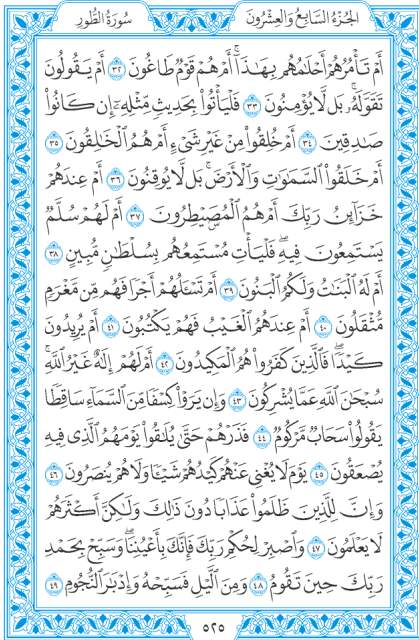 سُورَةُ الطُّورِ
الجُزْءُ السَّابِعُ وَالعِشْرُونَ
أَمْ تَأْمُرُهُمْ أَحْلَٰمُهُم بِهَٰذَآ ۚ أَمْ هُمْ قَوْمٌ طَاغُونَ ٣٢ أَمْ يَقُولُونَ
تَقَوَّلَهُۥ ۚ بَل لَّا يُؤْمِنُونَ ٣٣ فَلْيَأْتُوا۟ بِحَدِيثٍ مِّثْلِهِۦٓ إِن كَانُوا۟
صَٰدِقِينَ ٣٤ أَمْ خُلِقُوا۟ مِنْ غَيْرِ شَىْءٍ أَمْ هُمُ ٱلْخَٰلِقُونَ ٣٥
أَمْ خَلَقُوا۟ ٱلسَّمَٰوَٰتِ وَٱلْأَرْضَ ۚ بَل لَّا يُوقِنُونَ ٣٦ أَمْ عِندَهُمْ
خَزَآئِنُ رَبِّكَ أَمْ هُمُ ٱلْمُصَۣيْطِرُونَ ٣٧ أَمْ لَهُمْ سُلَّمٌ
يَسْتَمِعُونَ فِيهِ ۖ فَلْيَأْتِ مُسْتَمِعُهُم بِسُلْطَٰنٍ مُّبِينٍ ٣٨
أَمْ لَهُ ٱلْبَنَٰتُ وَلَكُمُ ٱلْبَنُونَ ٣٩ أَمْ تَسْـَٔلُهُمْ أَجْرًا فَهُم مِّن مَّغْرَمٍ
مُّثْقَلُونَ ٤٠ أَمْ عِندَهُمُ ٱلْغَيْبُ فَهُمْ يَكْتُبُونَ ٤١ أَمْ يُرِيدُونَ
كَيْدًا ۖ فَٱلَّذِينَ كَفَرُوا۟ هُمُ ٱلْمَكِيدُونَ ٤٢ أَمْ لَهُمْ إِلَٰهٌ غَيْرُ ٱللَّهِ ۚ
سُبْحَٰنَ ٱللَّهِ عَمَّا يُشْرِكُونَ ٤٣ وَإِن يَرَوْا۟ كِسْفًا مِّنَ ٱلسَّمَآءِ سَاقِطًا
يَقُولُوا۟ سَحَابٌ مَّرْكُومٌ ٤٤ فَذَرْهُمْ حَتَّىٰ يُلَٰقُوا۟ يَوْمَهُمُ ٱلَّذِى فِيهِ
يُصْعَقُونَ ٤٥ يَوْمَ لَا يُغْنِى عَنْهُمْ كَيْدُهُمْ شَيْـًٔا وَلَا هُمْ يُنصَرُونَ ٤٦
وَإِنَّ لِلَّذِينَ ظَلَمُوا۟ عَذَابًا دُونَ ذَٰلِكَ وَلَٰكِنَّ أَكْثَرَهُمْ
لَا يَعْلَمُونَ ٤٧ وَٱصْبِرْ لِحُكْمِ رَبِّكَ فَإِنَّكَ بِأَعْيُنِنَا ۖ وَسَبِّحْ بِحَمْدِ
رَبِّكَ حِينَ تَقُومُ ٤٨ وَمِنَ ٱلَّيْلِ فَسَبِّحْهُ وَإِدْبَٰرَ ٱلنُّجُومِ ٤٩
٥٢٥